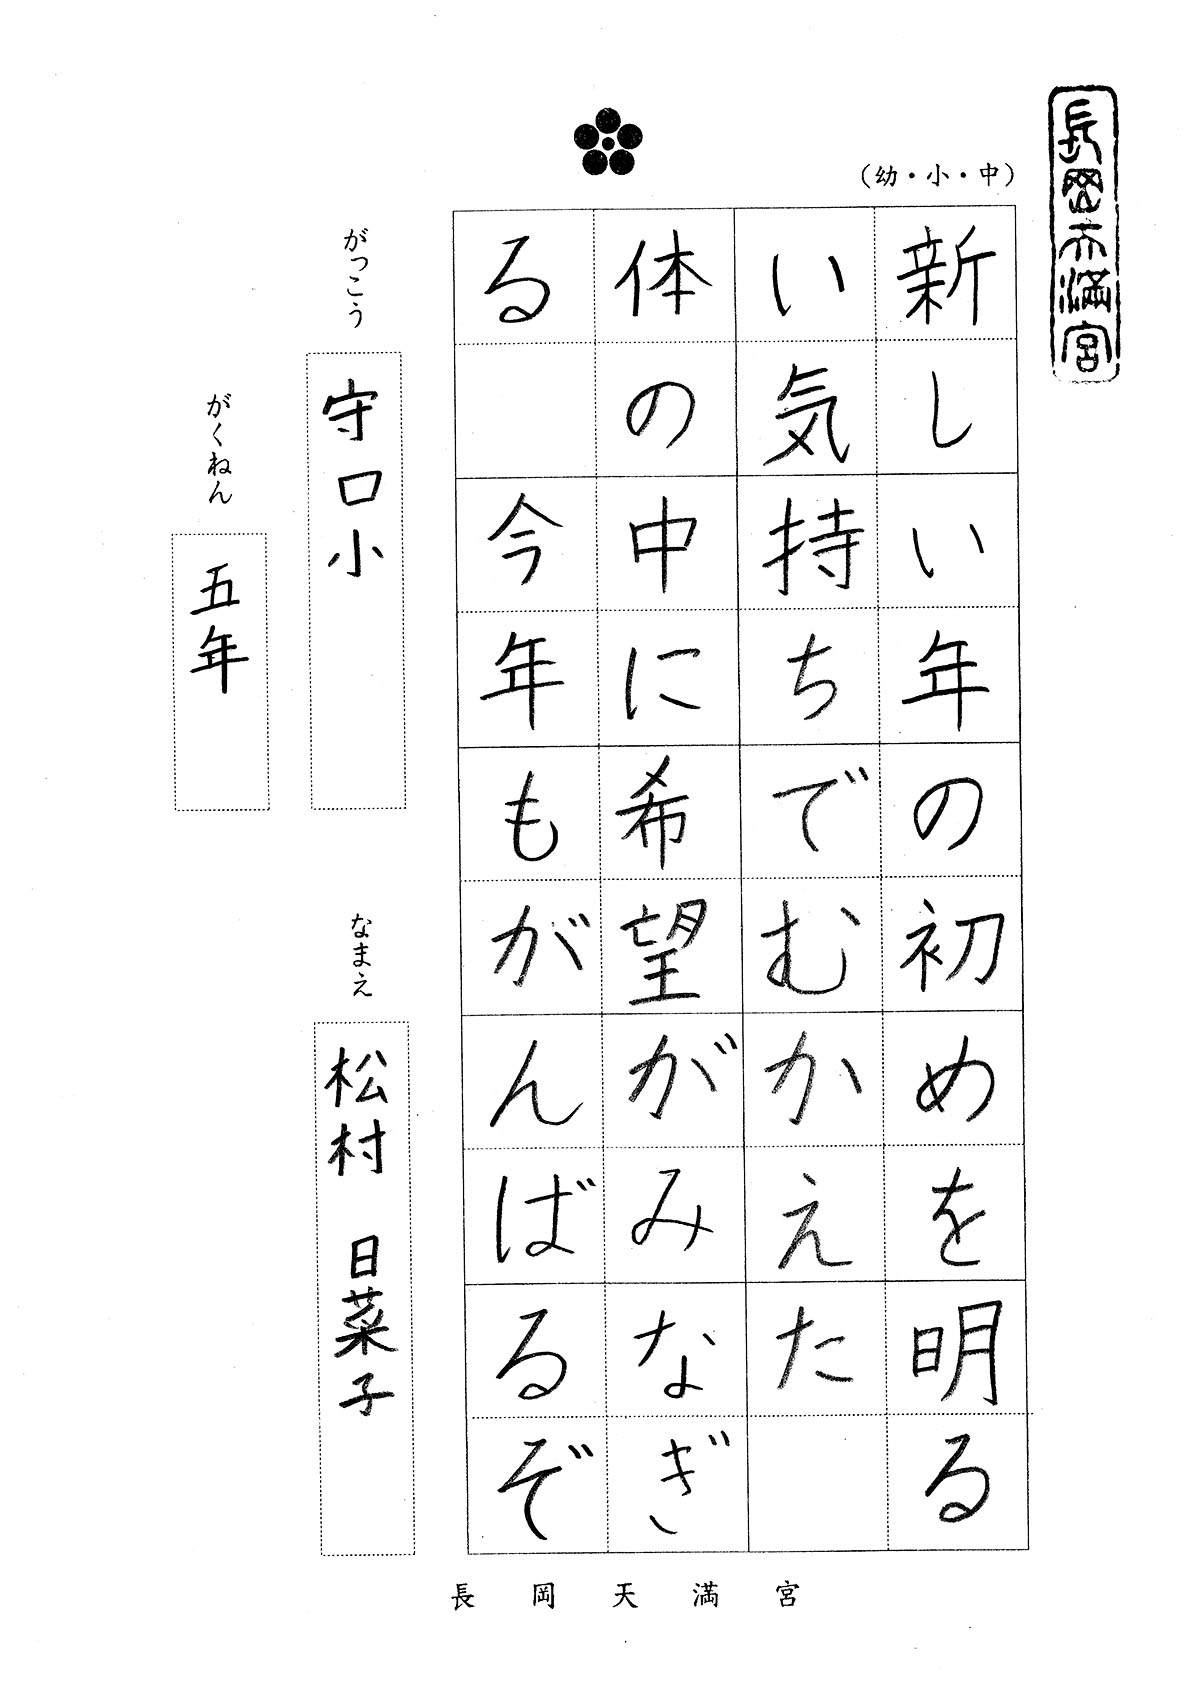 長岡天満宮
(幼・小・中)
新しい年の初めを明る
い気持ちでむかえた
体の中に希望がみなぎ
る 今年もがんばるぞ
がっこう
守口小
がくねん
五年
なまえ
松村 日菜子
長岡天満宮